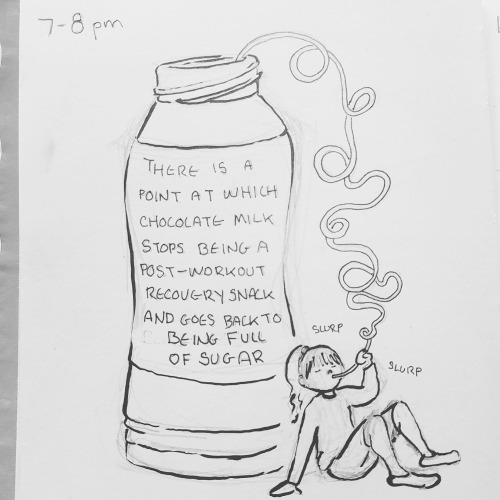 7-8 pm
THERE IS A
POINT AT WHICH
CHOCOLATE MILK
STOPS BEING A
POST-WORKOUT
RECOVERY SNACK
AND GOES BACK TO
BEING FULL
OF SUGAR
SLURP
SLURP